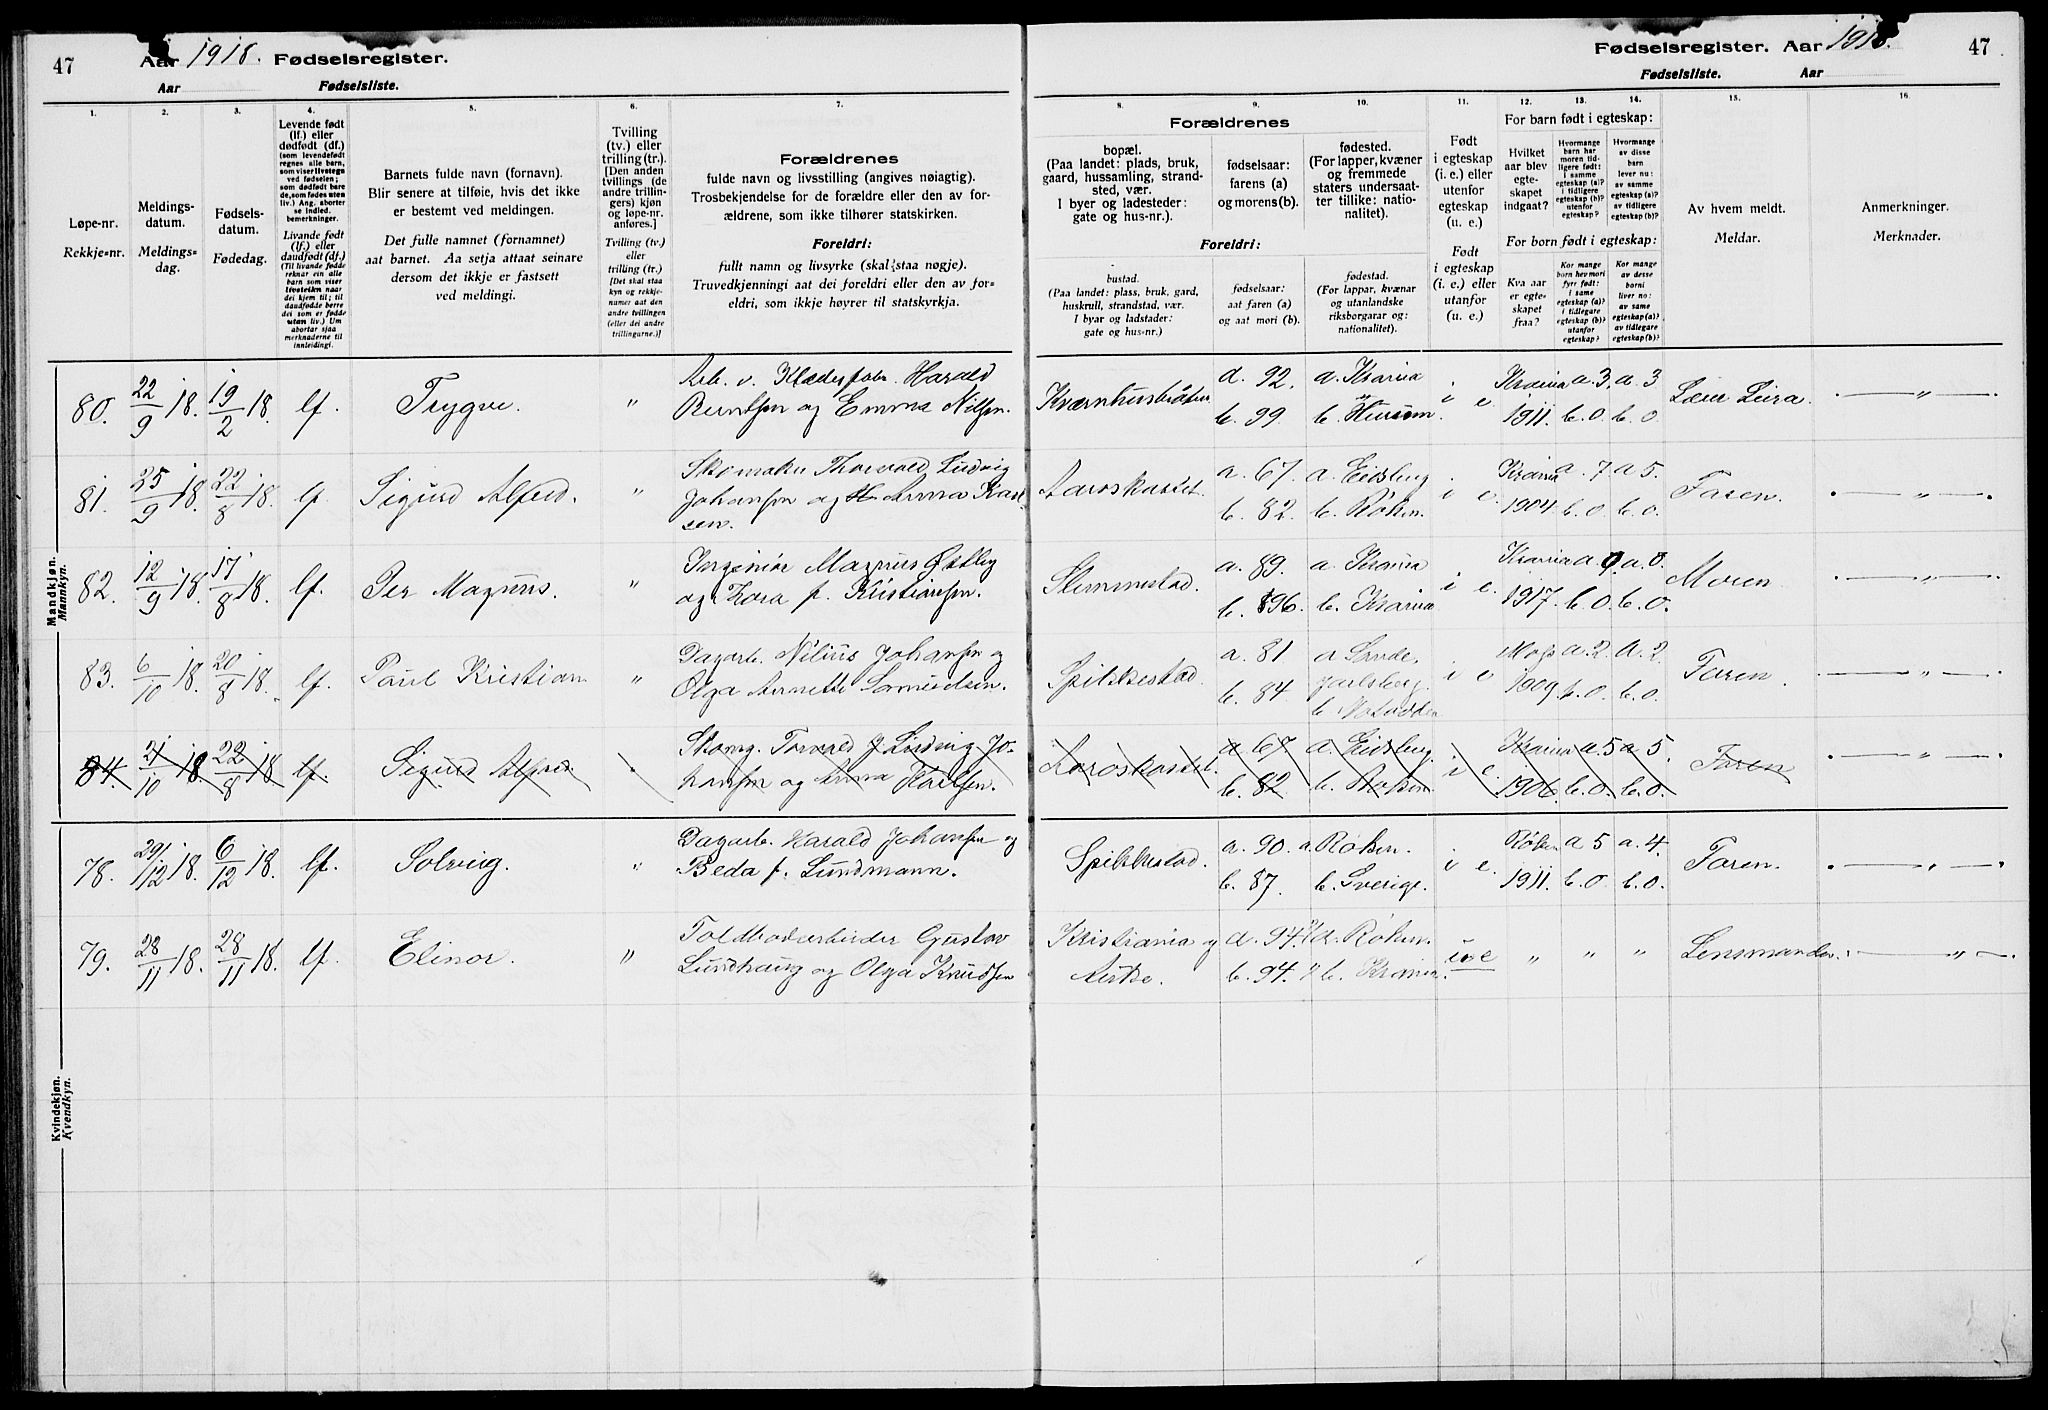 47
Aar 1918. Fødselsregister.
Aar Fødselsliste.
Fødselsregister. Aar 1918.
47
Fødselsliste. Aar
1.
2.
3.
4.
5.
6.
7.
8.
9.
10.
11.
12.
13.
14.
15.
16.
Løpe-nr.
Rekkje=nr.
Meldings-
datum.
Meldings=
dag.
Fødsels-
datum.
Fødedag.
Levende født
(lf.) eller
dødfødt (df.)
(som levendefødt
regnes alle barn,
som viser livstegn
ved fødselen;
som dødfødt bare
de, som fødes uten
liv.) Ang. aborter
se indled.
bemerkninger.
Livande født
(lf.) eller
daudfødt (df.)
(Til livande fødde
reknar ein alle
barn som viser
livsteikn naar
dei kjem til; til
daudfødde berre
dei som er fødde
utan liv.) Um
abortar sjaa
merknaderne til
innleidingi.
Barnets fulde navn (fornavn).
Blir senere at tilføie, hvis det ikke
er bestemt ved meldingen.
Det fulle namnet (fornamnet)
aat barnet. Aa setja attaat seinare
dersom det ikkje er fastsett
ved meldingi.
Tvilling
(tv.) eller
trilling (tr.).
[Den anden
tvillings (de
andre trillin-
gers) kjøn
og løpe-nr.
anføres.]
Tvilling (tv.)
eller
trilling (tr.)
[Det skal staa
kyn og rekkje-
numer aat den
andre tvillingen
(eller dei andre
trillingarne.)]
Forældrenes
fulde navn og livsstilling (angives nøiagtig).
Trosbekjendelse for de forældre eller den av for-
ældrene, som ikke tilhører statskirken.
Foreldri:
fullt namn og livsyrke (skal staa nøgje).
Truvedkjenningi aat dei foreldri eller den av for-
eldri, som ikkje høyrer til statskyrkja.
Forældrenes
bopæl.
(Paa landet: plads, bruk,
gaard, hussamling, strand-
sted, vær.
I byer og ladesteder:
gate og hus-nr.).
fødselsaar:
farens (a)
og morens (b).
fødested.
(For lapper, kvæner
og fremmede
staters undersaat-
ter tillike: natio-
nalitet).
Foreldri:
bustad.
(Paa landet: plass, bruk, gard,
huskrull, strandstad, vær.
I byar og ladstader:
gate og hus-nr.)
fødselsaar:
aat faren (a)
og aat mori (b).
fødestad.
(For lappar, kvænar
og utanlandske
riksborgarar og:
nationalitet).
Født
i egteskap
(i. e.) eller
utenfor
egteskap
(u. e.)
Født
i egteskap
(i. e.) eller
utanfor
(u. e.)
For barn født i egteskap:
Hvilket
aar blev
egte-
skapet
indgaat?
Hvormange
barn har
moren tid-
ligere født:
i samme
egteskap (a)?
i tidligere
egteskap (b)?
utenfor
egteskap?
Hvormange
av disse
barn
lever nu:
av samme
egteskap (a)?
av tidligere
egteskap (b)?
For born født i egteskap:
Kva aar
er egte-
skapet
fraa?
Kor mange
born hev mori
fyrr født:
i same
egteskap (a)?
i tidlegare
egteskap (b)?
utanfor
egteskap?
Kor mange
av desse
borni
liver no:
av same
egteskap (a)?
av tidlegare
egteskap (b)?
Av hvem meldt.
Meldar.
Anmerkninger.
Merknader.
Mandkjøn.
Mannkyn.
80. 22/9 18. 19/2 18. lf. Trygve. " Arb. v. Harald
Berntsen og Emma Nilsen. a. 92. b. 99. a. Krania b. Hurum. i e. Krania 1911. a. 3. b. 0. a. 3 b. 0. Leira. — " —
81. 25/9 18. 22/8 18. lf. Sigurd Alfred. " Skomaker Thorvald Ludvig
Johansen og Anna Karl
sen. Aaroskastet. a. 67. b. 82. a. Eidsberg b. Røken. i e. Krania 1904. a. 7 b. 0. a 5. b. 0. Faren. — " —
82. 12/9 18. 17/8 18. lf. Per Magnus. " Ingeniør Magnus Østby
og Zara f. Kristiansen. Slemmestad. a. 89. b. 896. a. Krania b. Krania i e. Krania 1917. a. 0 b. 0. a. 0. b. 0. Moren — " —
83. 6/10 18. 20/8 18. lf. Paul Kristian " Dagarb. Nilius Johansen og
Olga Annette Samuelsen. Spikkestad. a. 81 b. 84. a Sande, Jarlsberg. b. Notodden i e 1909 a. 2. b. 0. a. 2. b. 0. Faren. — " —
84. 21/10 18. 22/8 18. lf. Sigurd Alfred " Skomg. Torvald Ludvig Jo-
hansen og Anna Karlsen. Aaroskastet. a 67 b. 82 a. Eidsberg. b. Røken. i e. Krania 1906. a. 5 b. 0. a 5. b. 0. Faren — " —
Kvindekjøn.
Kvendkyn.
78. 29/12 18. 6/12 18. lf. Solveig. " Dagarb. Harald Johansen og
Beda f. Lundmann. Spikkestad. a. 90. b. 87. a. Røken. b. Sverige. i e. Røken 1911. a 5 b. 0. a. 4. b. 0. Faren. — " —
79. 28/11 18. 28/11 18. lf. Elinor. " Toldbodarbeider Gustav
Lundhaug og Olga Knudsen Kristiania og a. 94. b. 94. a. Røken. b. Krania. u e " " " Lensmanden. — " —